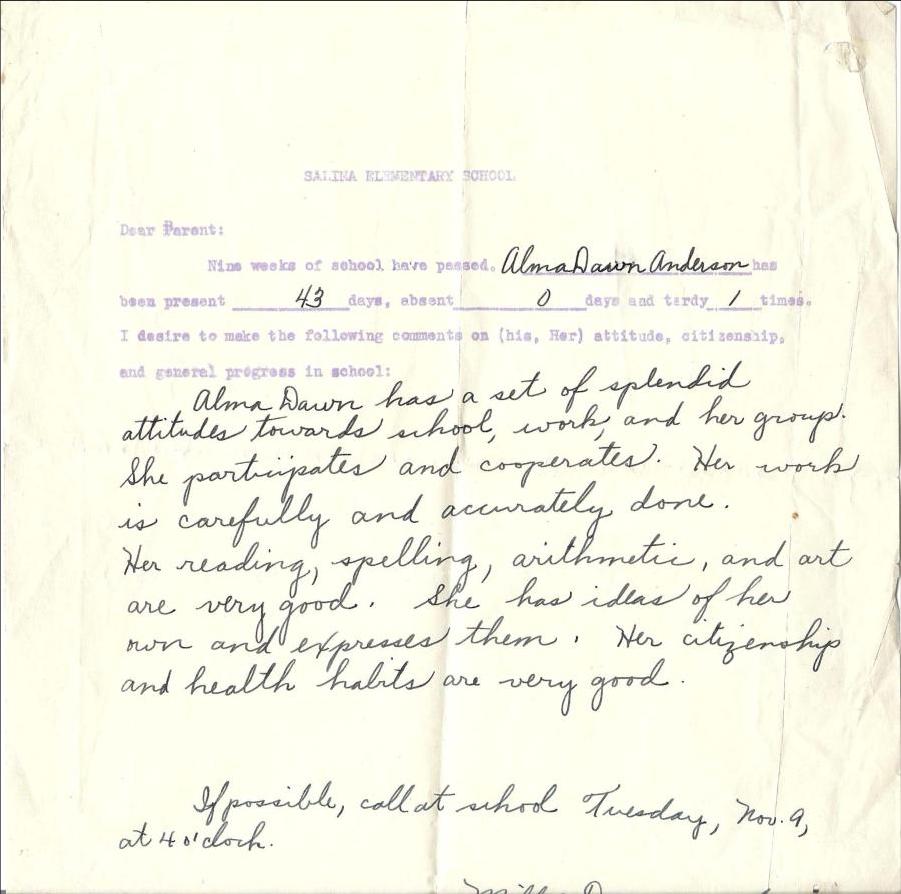 SALINA ELEMENTARY SCHOOL
Dear Parent:
Nine weeks of school have passed. Alma Dawn Anderson has
been present 43 days, absent 0 days and tardy 1 times.
I desire to make the following comments on (his, Her) attitude, citizenship,
and general progress in school:
Alma Dawn has a set of splendid
attitudes towards school, work, and her group.
She participates and cooperates. Her work
is carefully and accurately done.
Her reading, spelling, arithmetic, and art
are very good. She has ideas of her
own and expresses them. Her citizenship
and health habits are very good.
If possible, call at school Tuesday, Nov. 9,
at 4 o'clock.